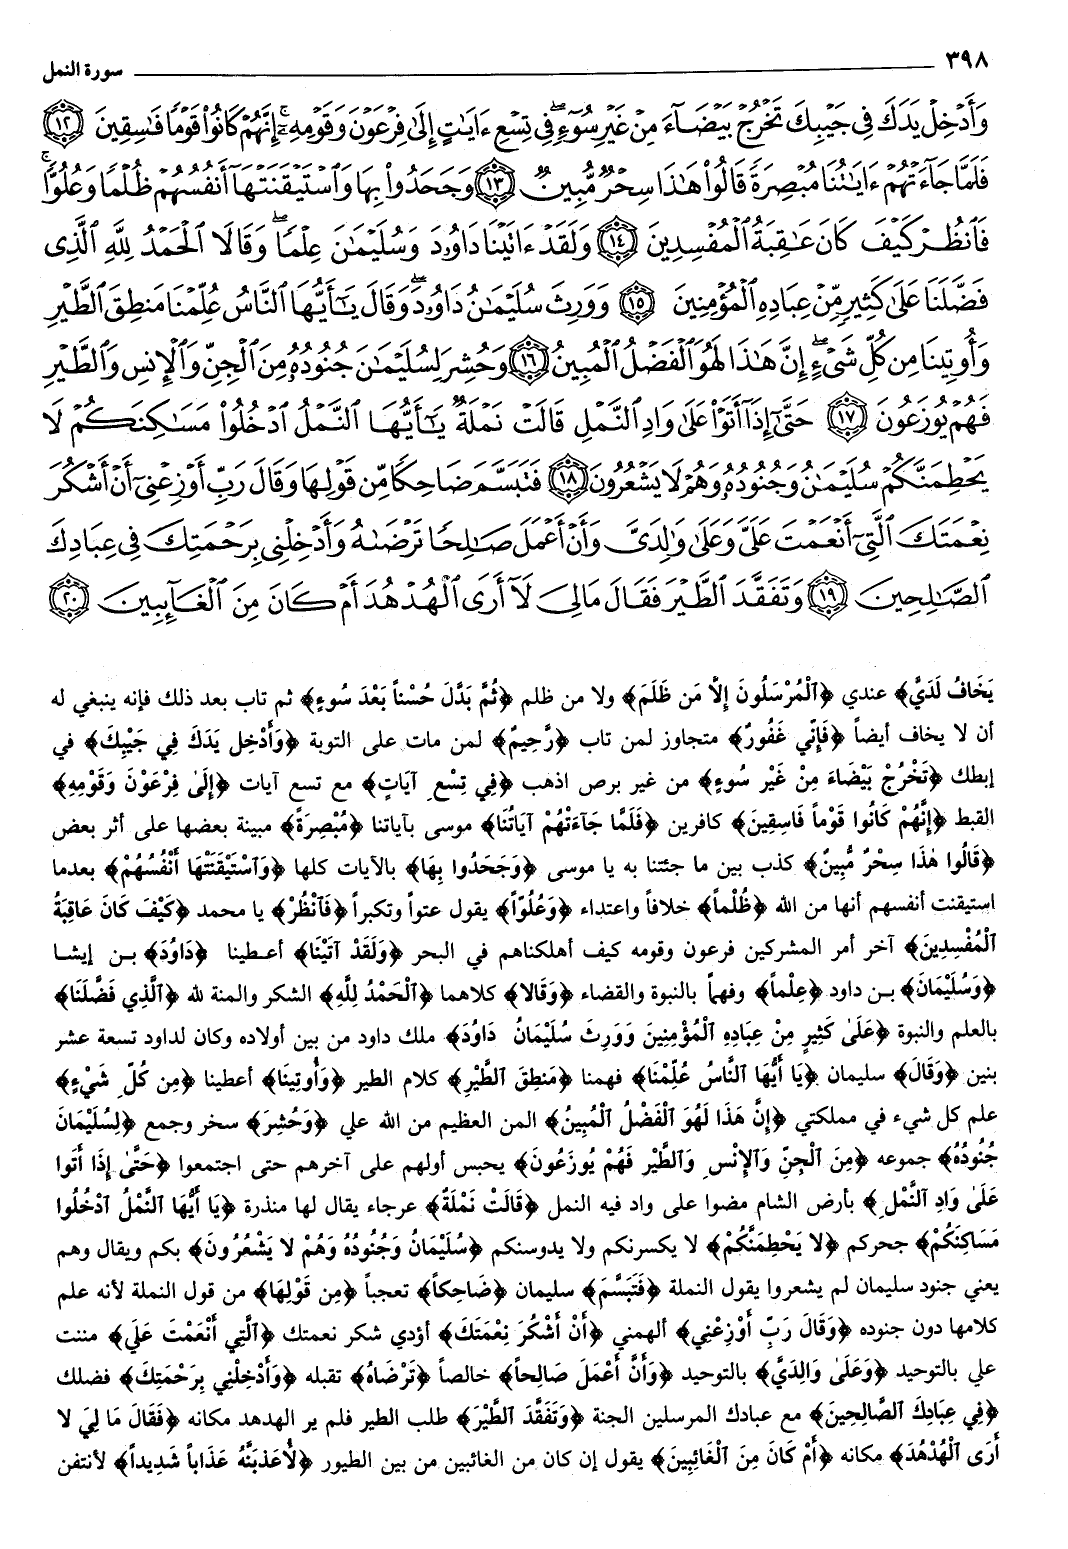 ٣٩٨ سورة النمل
وَأَدْخِلْ يَدَكَ فِي جَيْبِكَ تَخْرُجْ بَيْضَآءَ مِنْ غَيْرِ سُوٓءٍ ۖ فِي تِسْعِ ءَايَٰتٍ إِلَىٰ فِرْعَوْنَ وَقَوْمِهِۦٓ ۚ إِنَّهُمْ كَانُوا۟ قَوْمًا فَٰسِقِينَ ١٢
فَلَمَّا جَآءَتْهُمْ ءَايَٰتُنَا مُبْصِرَةً قَالُوا۟ هَٰذَا سِحْرٌ مُّبِينٌ ١٣ وَجَحَدُوا۟ بِهَا وَٱسْتَيْقَنَتْهَآ أَنفُسُهُمْ ظُلْمًا وَعُلُوًّا ۚ
فَٱنظُرْ كَيْفَ كَانَ عَٰقِبَةُ ٱلْمُفْسِدِينَ ١٤ وَلَقَدْ ءَاتَيْنَا دَاوُۥدَ وَسُلَيْمَٰنَ عِلْمًا ۖ وَقَالَا ٱلْحَمْدُ لِلَّهِ ٱلَّذِي
فَضَّلَنَا عَلَىٰ كَثِيرٍ مِّنْ عِبَادِهِ ٱلْمُؤْمِنِينَ ١٥ وَوَرِثَ سُلَيْمَٰنُ دَاوُۥدَ ۖ وَقَالَ يَٰٓأَيُّهَا ٱلنَّاسُ عُلِّمْنَا مَنطِقَ ٱلطَّيْرِ
وَأُوتِينَا مِن كُلِّ شَيْءٍ ۖ إِنَّ هَٰذَا لَهُوَ ٱلْفَضْلُ ٱلْمُبِينُ ١٦ وَحُشِرَ لِسُلَيْمَٰنَ جُنُودُهُۥ مِنَ ٱلْجِنِّ وَٱلْإِنسِ وَٱلطَّيْرِ
فَهُمْ يُوزَعُونَ ١٧ حَتَّىٰٓ إِذَآ أَتَوْا۟ عَلَىٰ وَادِ ٱلنَّمْلِ قَالَتْ نَمْلَةٌ يَٰٓأَيُّهَا ٱلنَّمْلُ ٱدْخُلُوا۟ مَسَٰكِنَكُمْ لَا
يَحْطِمَنَّكُمْ سُلَيْمَٰنُ وَجُنُودُهُۥ وَهُمْ لَا يَشْعُرُونَ ١٨ فَتَبَسَّمَ ضَاحِكًا مِّن قَوْلِهَا وَقَالَ رَبِّ أَوْزِعْنِيٓ أَنْ أَشْكُرَ
نِعْمَتَكَ ٱلَّتِيٓ أَنْعَمْتَ عَلَيَّ وَعَلَىٰ وَٰلِدَيَّ وَأَنْ أَعْمَلَ صَٰلِحًا تَرْضَىٰهُ وَأَدْخِلْنِي بِرَحْمَتِكَ فِي عِبَادِكَ
ٱلصَّٰلِحِينَ ١٩ وَتَفَقَّدَ ٱلطَّيْرَ فَقَالَ مَا لِيَ لَآ أَرَى ٱلْهُدْهُدَ أَمْ كَانَ مِنَ ٱلْغَآئِبِينَ ٢٠
يَخَافُ لَدَيَّ﴾ عندي ﴿ٱلْمُرْسَلُونَ إِلَّا مَن ظَلَمَ﴾ ولا من ظلم ﴿ثُمَّ بَدَّلَ حُسْناً بَعْدَ سُوءٍ﴾ ثم تاب بعد ذلك فإنه ينبغي له
أن لا يخاف أيضاً ﴿فَإِنِّي غَفُورٌ﴾ متجاوز لمن تاب ﴿رَّحِيمٌ﴾ لمن مات على التوبة ﴿وَأَدْخِل يَدَكَ فِي جَيْبِكَ﴾ في
إبطك ﴿تَخْرُجْ بَيْضَاءَ مِنْ غَيْرِ سُوءٍ﴾ من غير برص اذهب ﴿فِي تِسْعِ آيَاتٍ﴾ مع تسع آيات ﴿إِلَىٰ فِرْعَوْنَ وَقَوْمِهِ﴾
القبط ﴿إِنَّهُمْ كَانُوا قَوْماً فَاسِقِينَ﴾ كافرين ﴿فَلَمَّا جَآءَتْهُمْ آيَاتُنَا﴾ موسى بآياتنا ﴿مُبْصِرَةً﴾ مبينة بعضها على أثر بعض
﴿قَالُوا هٰذَا سِحْرٌ مُّبِينٌ﴾ كذب بين ما جئتنا به يا موسى ﴿وَجَحَدُوا بِهَا﴾ بالآيات كلها ﴿وَٱسْتَيْقَنَتْهَا أَنْفُسُهُمْ﴾ بعدما
استيقنت أنفسهم أنها من الله ﴿ظُلْماً﴾ خلافاً واعتداء ﴿وَعُلُوّاً﴾ يقول عتواً وتكبراً ﴿فَٱنْظُرْ﴾ يا محمد ﴿كَيْفَ كَانَ عَاقِبَةُ
ٱلْمُفْسِدِينَ﴾ آخر أمر المشركين فرعون وقومه كيف أهلكناهم في البحر ﴿وَلَقَدْ آتَيْنَا﴾ أعطينا ﴿دَاوُدَ﴾ بن إيشا
﴿وَسُلَيْمَانَ﴾ بن داود ﴿عِلْماً﴾ وفهماً بالنبوة والقضاء ﴿وَقَالَا﴾ كلاهما ﴿ٱلْحَمْدُ لِلَّهِ﴾ الشكر والمنة لله ﴿ٱلَّذِي فَضَّلَنَا﴾
بالعلم والنبوة ﴿عَلَىٰ كَثِيرٍ مِنْ عِبَادِهِ ٱلْمُؤْمِنِينَ وَوَرِثَ سُلَيْمَانُ دَاوُدَ﴾ ملك داود من بين أولاده وكان لداود تسعة عشر
بنين ﴿وَقَالَ﴾ سليمان ﴿يَا أَيُّهَا ٱلنَّاسُ عُلِّمْنَا﴾ فهمنا ﴿مَنطِقَ ٱلطَّيْرِ﴾ كلام الطير ﴿وَأُوتِينَا﴾ أعطينا ﴿مِن كُلِّ شَيْءٍ﴾
علم كل شيء في مملكتي ﴿إِنَّ هَذَا لَهُوَ ٱلْفَضْلُ ٱلْمُبِينُ﴾ المن العظيم من الله علي ﴿وَحُشِرَ﴾ سخر وجمع ﴿لِسُلَيْمَانَ
جُنُودُهُ﴾ جموعه ﴿مِنَ ٱلْجِنِّ وَٱلْإِنْسِ وَٱلطَّيْرِ فَهُمْ يُوزَعُونَ﴾ يحبس أولهم على آخرهم حتى اجتمعوا ﴿حَتَّىٰ إِذَا أَتَوا
عَلَىٰ وَادِ ٱلنَّمْلِ﴾ بأرض الشام مضوا على واد فيه النمل ﴿قَالَتْ نَمْلَةٌ﴾ عرجاء يقال لها منذرة ﴿يَا أَيُّهَا ٱلنَّمْلُ ٱدْخُلُوا
مَسَاكِنَكُمْ﴾ جحركم ﴿لَا يَحْطِمَنَّكُمْ﴾ لا يكسرنكم ولا يدوسنكم ﴿سُلَيْمَانُ وَجُنُودُهُ وَهُمْ لَا يَشْعُرُونَ﴾ بكم ويقال وهم
يعني جنود سليمان لم يشعروا يقول النملة ﴿فَتَبَسَّمَ﴾ سليمان ﴿ضَاحِكاً﴾ تعجباً ﴿مِن قَوْلِهَا﴾ من قول النملة لأنه علم
كلامها دون جنوده ﴿وَقَالَ رَبِّ أَوْزِعْنِي﴾ ألهمني ﴿أَنْ أَشْكُرَ نِعْمَتَكَ﴾ أؤدي شكر نعمتك ﴿ٱلَّتِي أَنْعَمْتَ عَلَيَّ﴾ مننت
علي بالتوحيد ﴿وَعَلَىٰ وَالِدَيَّ﴾ بالتوحيد ﴿وَأَنْ أَعْمَلَ صَالِحاً﴾ خالصاً ﴿تَرْضَاهُ﴾ تقبله ﴿وَأَدْخِلْنِي بِرَحْمَتِكَ﴾ فضلك
﴿فِي عِبَادِكَ ٱلصَّالِحِينَ﴾ مع عبادك المرسلين الجنة ﴿وَتَفَقَّدَ ٱلطَّيْرَ﴾ طلب الطير فلم ير الهدهد مكانه ﴿فَقَالَ مَا لِيَ لَا
أَرَى ٱلْهُدْهُدَ﴾ مكانه ﴿أَمْ كَانَ مِنَ ٱلْغَائِبِينَ﴾ يقول إن كان من الغائبين من بين الطيور ﴿لَأُعَذِّبَنَّهُ عَذَاباً شَدِيداً﴾ لأنتفن